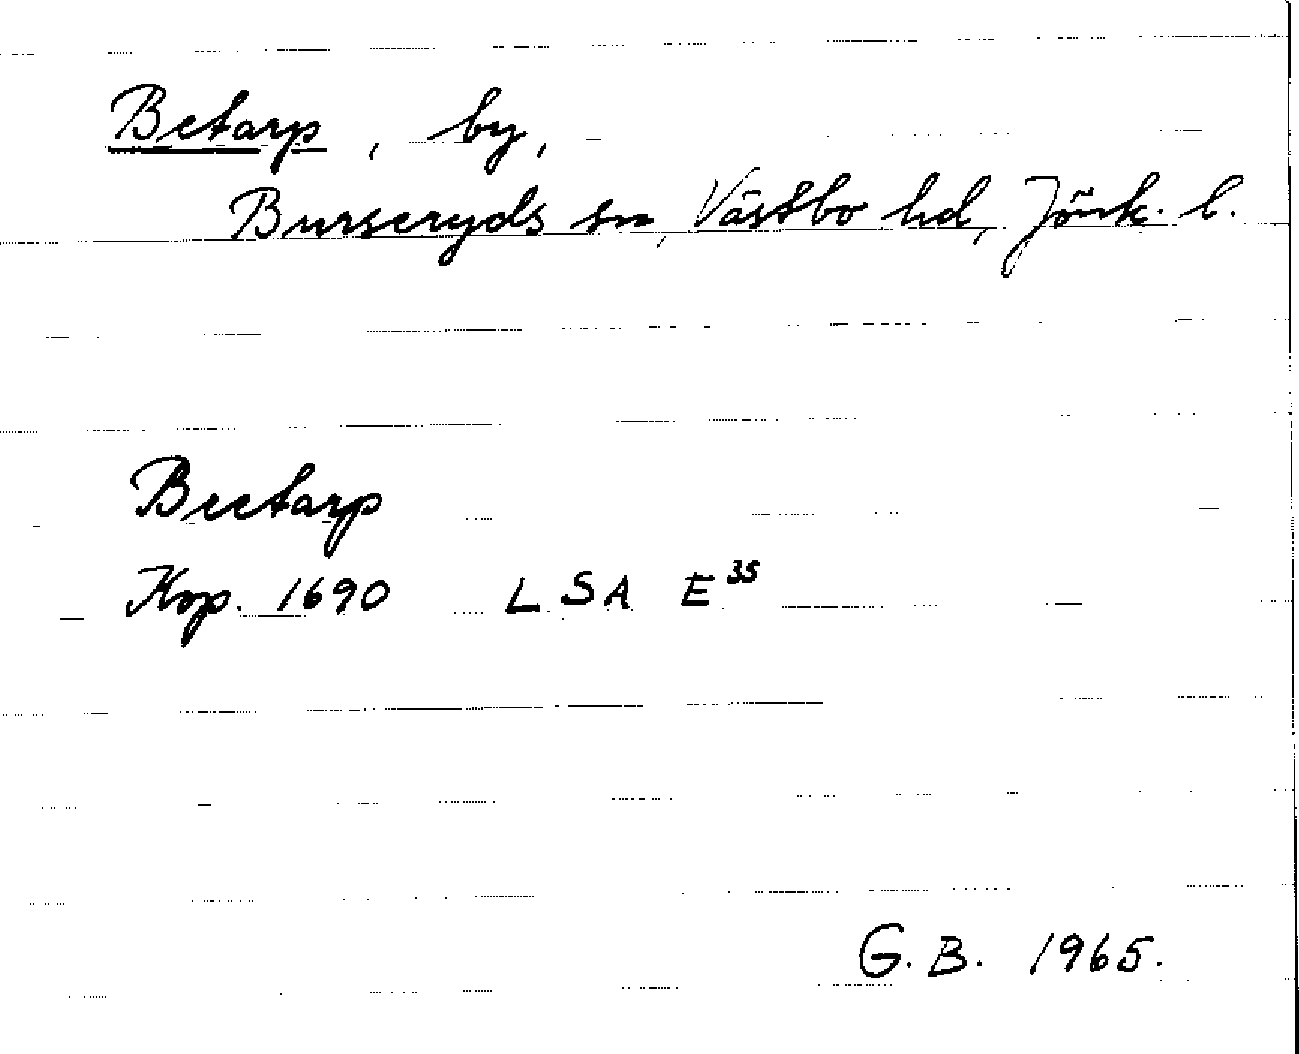 Betarp, by,
Burseryds sn, Västbo hd, Jönk. l.
Beetarp
Kop. 1690 LSA E 35
G. B. 1965.